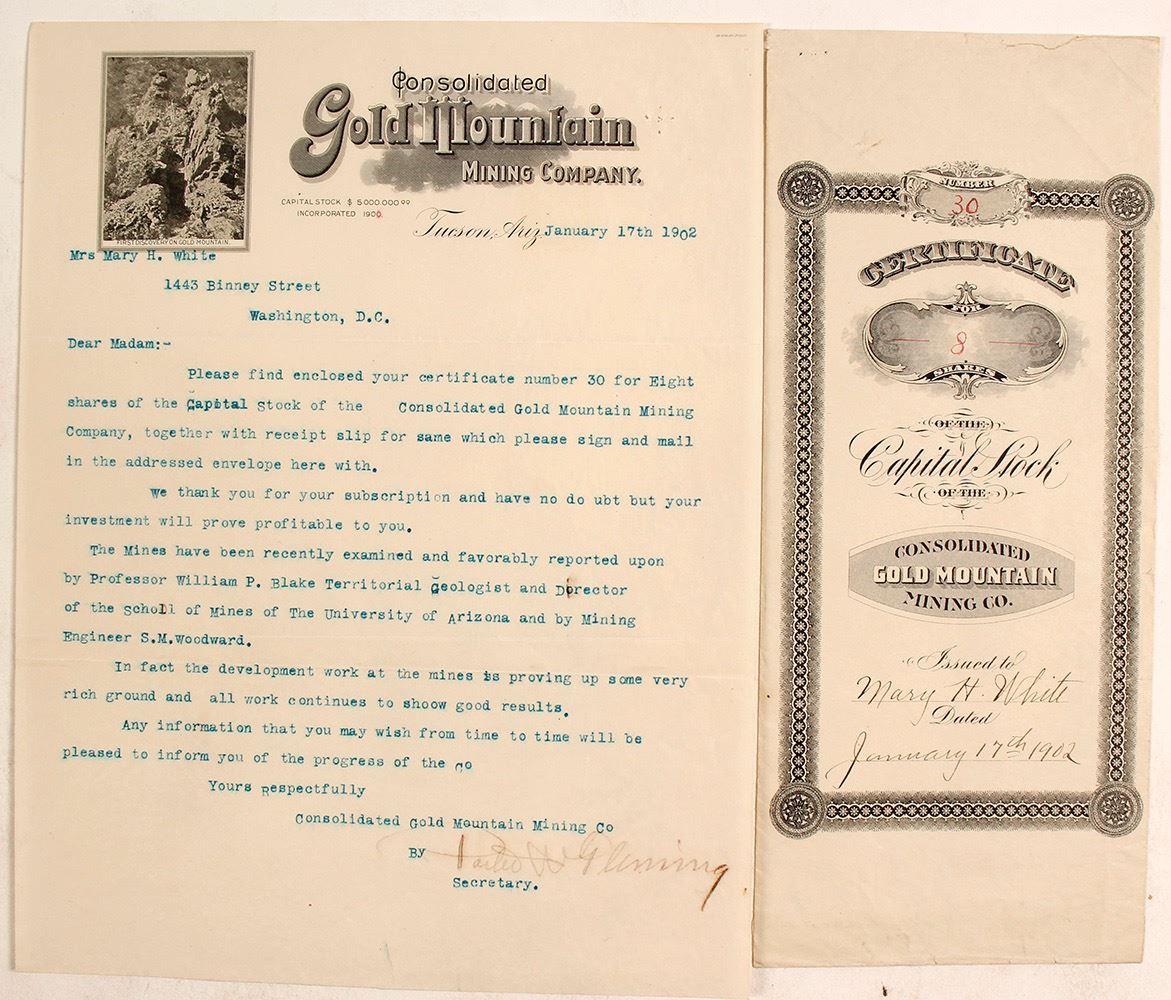 Consolidated
Gold Mountain
MINING COMPANY.
CAPITAL STOCK $ 5000.000 00
INCORPORATED 1900.
FIRST DISCOVERY ON GOLD MOUNTAIN.
Tucson, Ariz, January 17th 1902
Mrs Mary H. White
1443 Binney Street
Washington, D.C.
Dear Madam:-
Please find enclosed your certificate number 30 for Eight
shares of the Capital Stock of the Consolidated Gold Mountain Mining
Company, together with receipt slip for same which please sign and mail
in the addressed envelope here with.
We thank you for your subscription and have no do ubt but your
investment will prove profitable to you.
The Mines have been recently examined and favorably reported upon
by Professor William P. Blake Territorial Geologist and Director
of the Scholl of Mines of The University of Arizona and by Mining
Engineer S.M.Woodward.
In fact the development work at the mines is proving up some very
rich ground and all work continues to shoow good results.
Any information that you may wish from time to time will be
pleased to inform you of the progress of the co
Yours Respectfully
Consolidated Gold Mountain Mining Co
By
Secretary.
NUMBER
30
CERTIFICATE
FOR
8
SHARES
OF THE
Capital Stock
OF THE
CONSOLIDATED
GOLD MOUNTAIN
MINING CO.
Issued to
Mary H. White
Dated
January 17th 1902